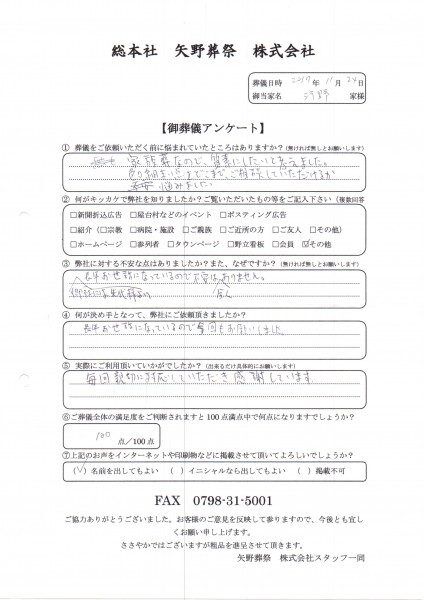 総本社 矢野葬祭 株式会社
葬儀日時 2017年 11月 24日
御当家名 河野 家様
【御葬儀アンケート】
① 葬儀をご依頼いただく前に悩まれていたところはありますか？(無ければ無しとお願いします)
家族葬なので、質素にしたいと考えました。
どこまでご相談していただけるか
悩みました
② 何がキッカケで弊社を知りましたか？ご覧いただいたもの等をご記入下さい (複数回答
□新聞折込広告 □屋台村などのイベント □ポスティング広告
□紹介 (□宗教 □病院・施設 □ご親族 □ご近所の方 □ご友人 □その他)
□ホームページ □参列者 □タウンページ □野立看板 □会員 ☑その他
③ 弊社に対する不安な点はありましたか？また、なぜですか？(無ければ無しとお願いします)
長年お世話になっているので不安はありません。
④ 何が決め手となって、弊社にご依頼頂きましたか？
長年お世話になっているので今回もお願いしました
⑤ 実際にご利用頂いていかがでしたか？(出来るだけ具体的にお願いします)
毎回親切に対応していただき感謝しています
⑥ご葬儀全体の満足度をご判断されますと 100 点満点中で何点になりますでしょうか？
100 点/100 点
⑦上記のお声をインターネットや印刷物などに掲載させて頂いてよろしいでしょうか？
(✓) 名前を出してもよい ( ) イニシャルなら出してもよい ( ) 掲載不可
FAX 0798-31-5001
ご協力ありがとうございました。お客様のご意見を反映して参りますので、今後とも宜し
くお願い申し上げます。
ささやかではございますが粗品を進呈させて頂きます。
矢野葬祭 株式会社スタッフ一同